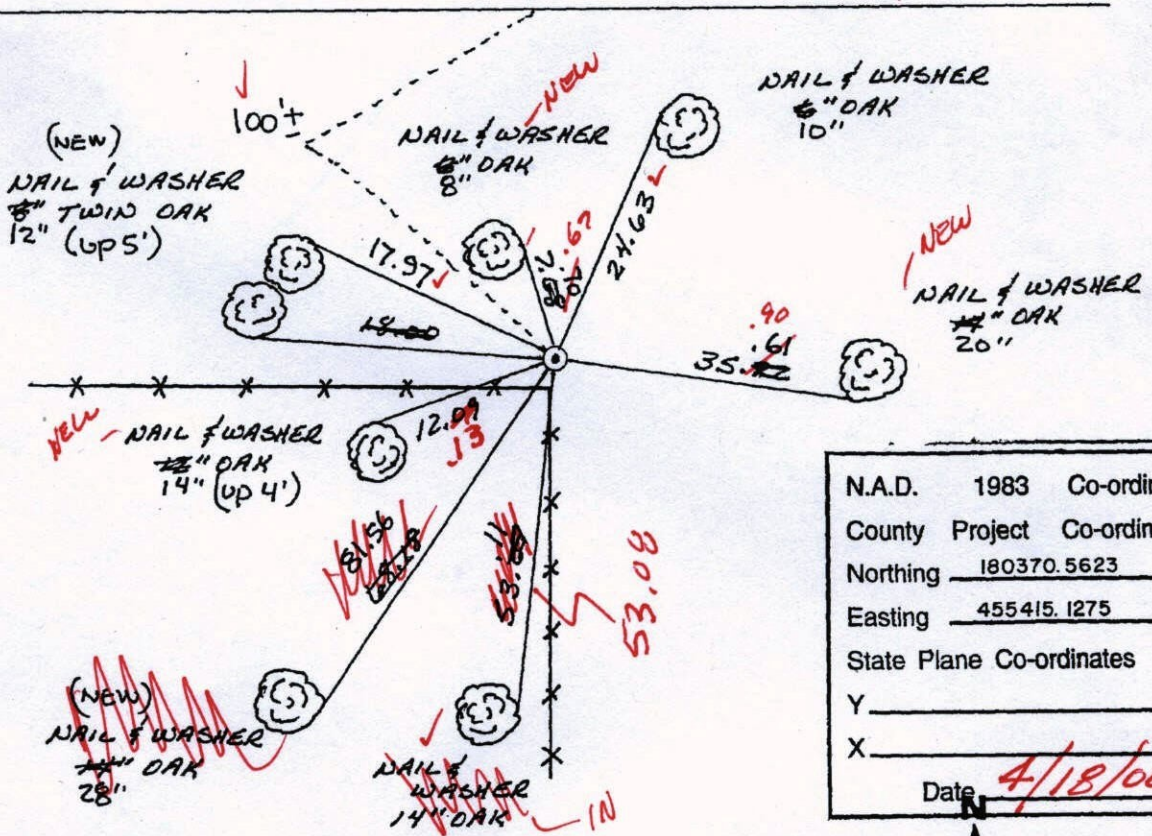 100'±
(NEW)
NAIL & WASHER
TWIN OAK
12" (UP 5')
NEW
NAIL & WASHER
6" OAK
8"
NAIL & WASHER
6" OAK
10"
17.97
.67
24.63
18.00
NEW
NAIL & WASHER
OAK
20"
.90
.61
35.
NEW
NAIL & WASHER
12" OAK
14" (UP 4')
12.09
.13
81.56
53.
53.08
(NEW)
NAIL & WASHER
OAK
28"
NAIL &
WASHER
14" OAK
IN
N.A.D. 1983 Co-ordin
County Project Co-ordin
Northing 180370.5623
Easting 455415.1275
State Plane Co-ordinates
Y
X
Date 4/18/0
N